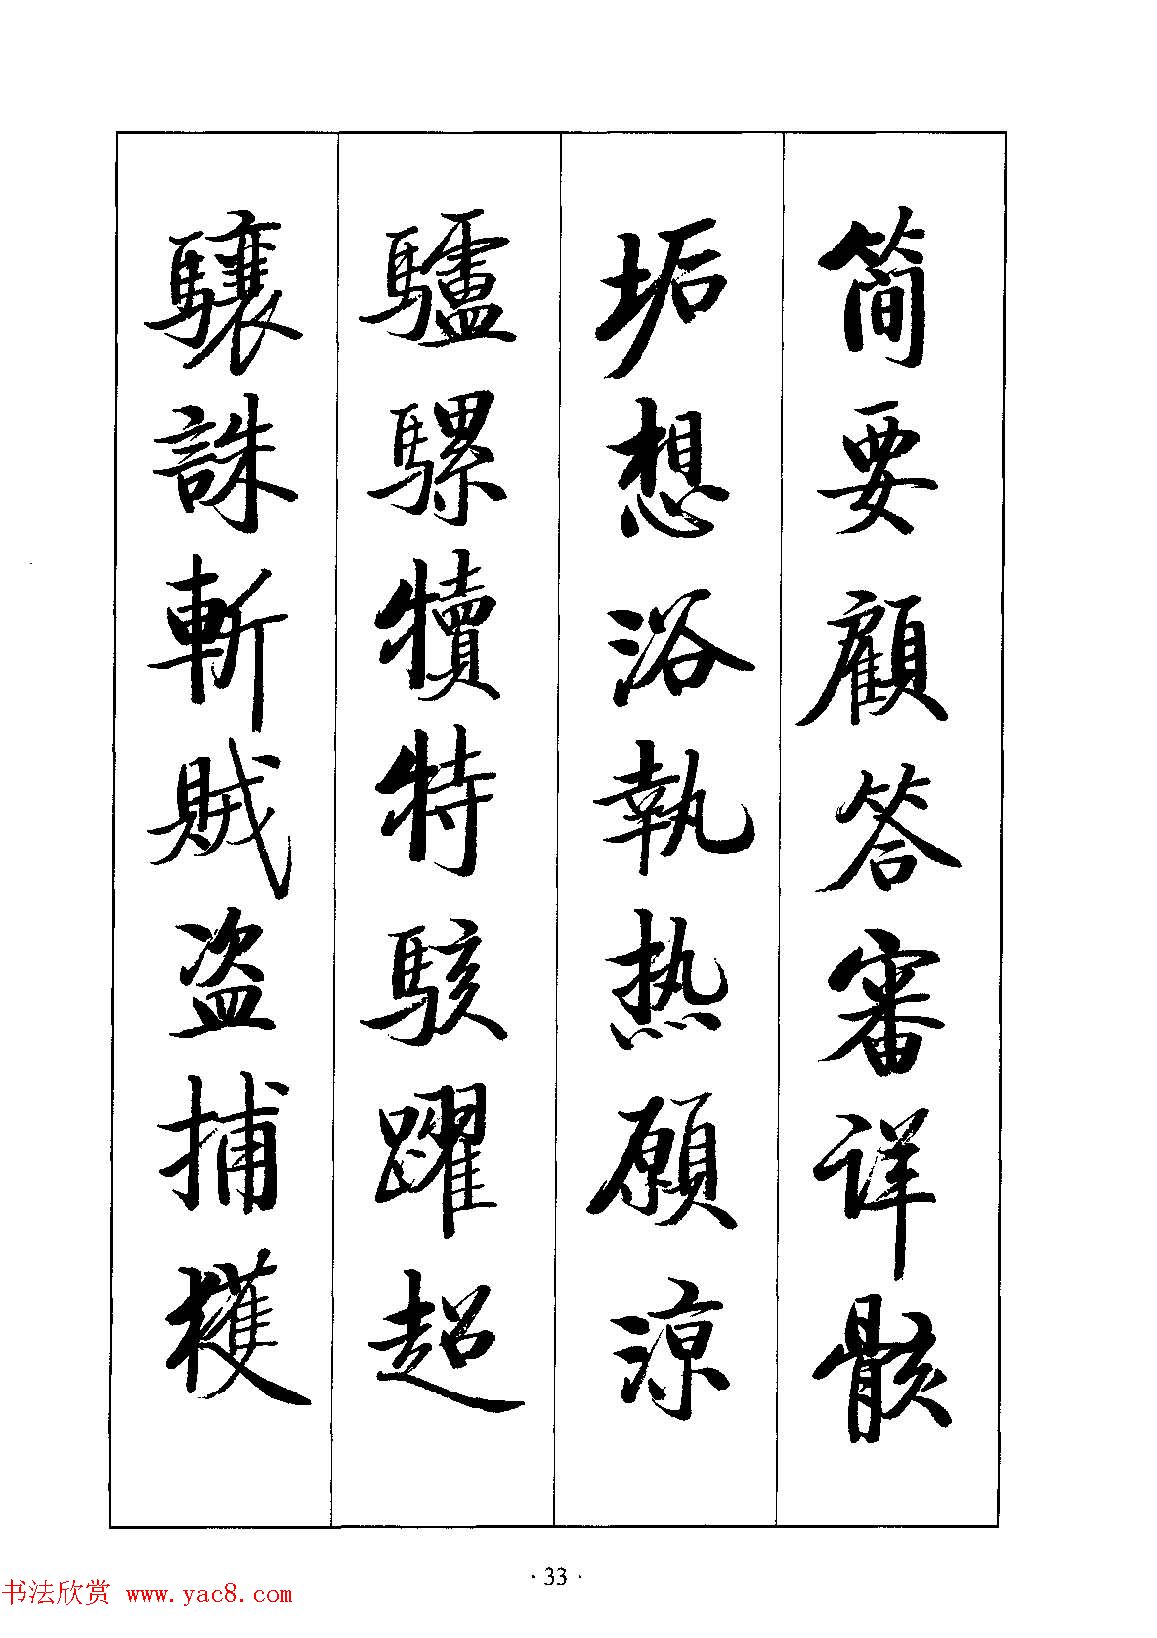 簡要顧答審详骸
垢想浴執热願涼
驢騾犢特駭躍超
驤誅斬賊盗捕獲
·33·
书法欣赏 www.yac8.com